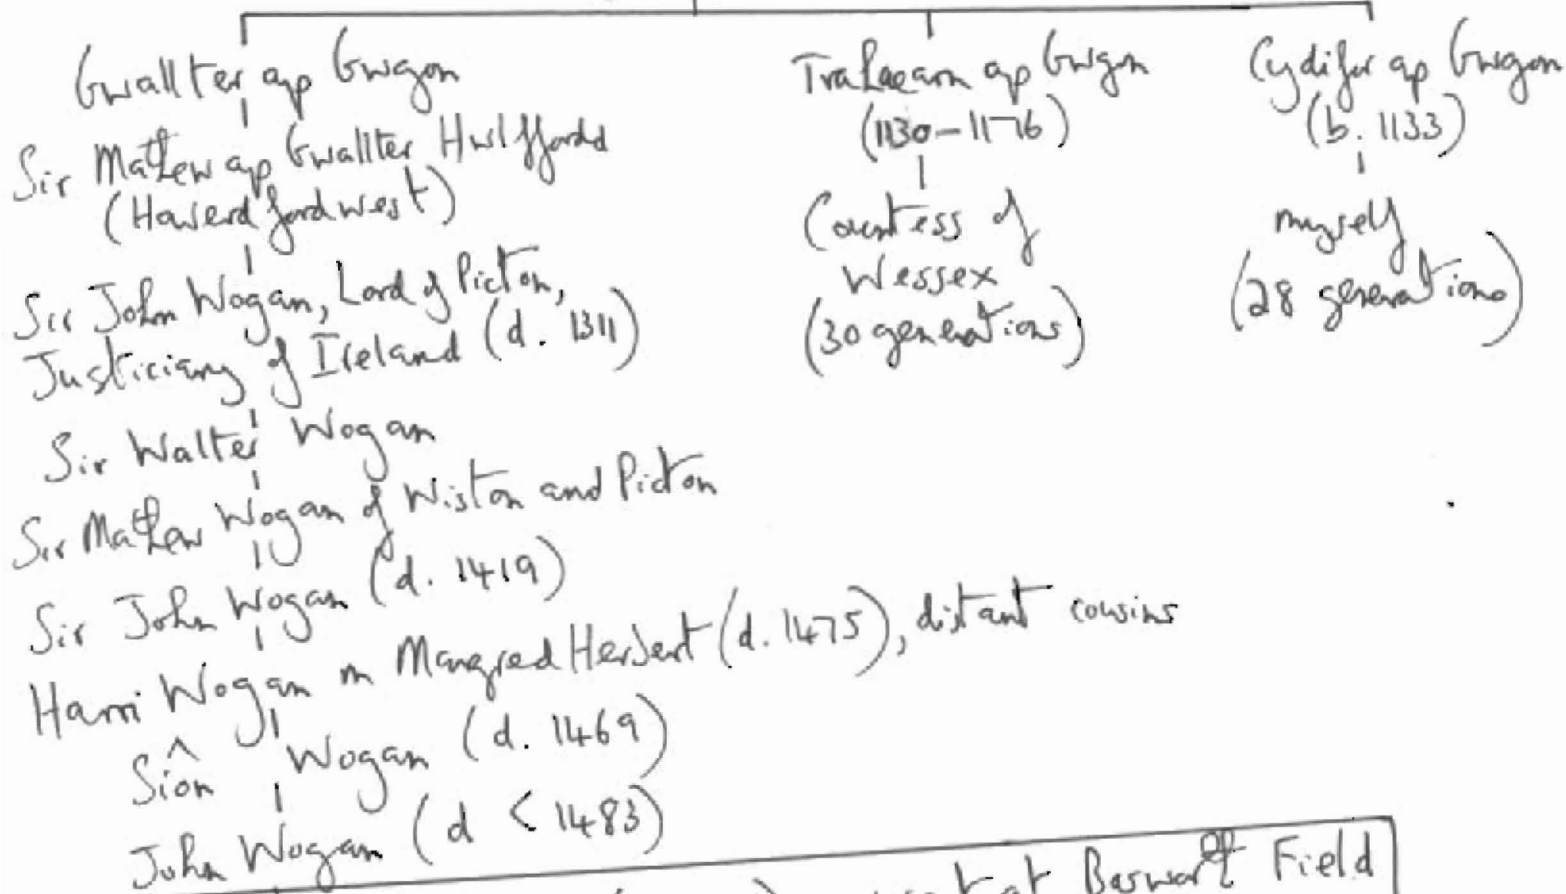 Gwallter ap Gwgon
Sir Mathew ap Gwallter Hwlffordd
(Haverfordwest)
Sir John Wogan, Lord of Picton,
Justiciary of Ireland (d. 1311)
Sir Walter Wogan
Sir Mathew Wogan of Wiston and Picton
Sir John Wogan (d. 1419)
Harri Wogan m Margred Herbert (d. 1475), distant cousins
Siôn Wogan (d. 1469)
John Wogan (d < 1483)
Trahaearn ap Gwgon
(1130-1176)
Countess of
Wessex
(30 generations)
Cydifor ap Gwgon
(b. 1133)
myself
(28 generations)
at Bosworth Field